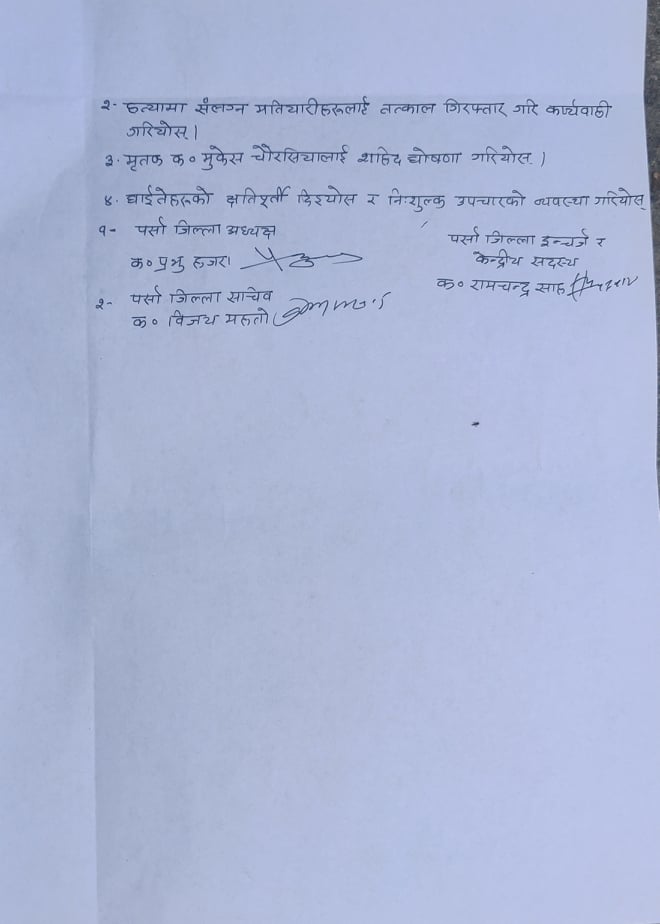 २- हत्यामा संलग्न मतियारीहरूलाई तत्काल गिरफ्तार गरि कार्यवाही
गरियोस् ।
३. मृतक क० मुकेस चौरसियालाई शहिद घोषणा गरियोस् ।
४. घाईतेहरूको क्षतिपूर्ती दियोस र निःशुल्क उपचारको व्यवस्था गरियोस्
१- पर्सा जिल्ला अध्यक्ष
क० प्रभु हजरा
२- पर्सा जिल्ला सचिव
क० विजय महतो
पर्सा जिल्ला इन्चर्ज र
केन्द्रीय सदस्य
क० रामचन्द्र साह